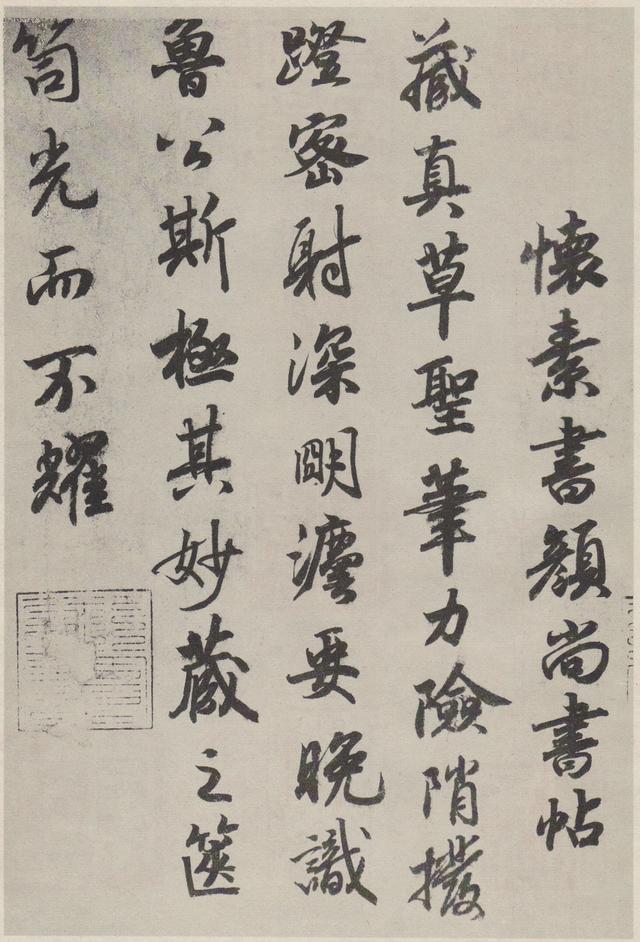 懷素書顏尚書帖
藏真草聖筆力險陗撥
蹬密射深朙灋要晚識
魯公斯極其妙藏之篋
笥光而不耀